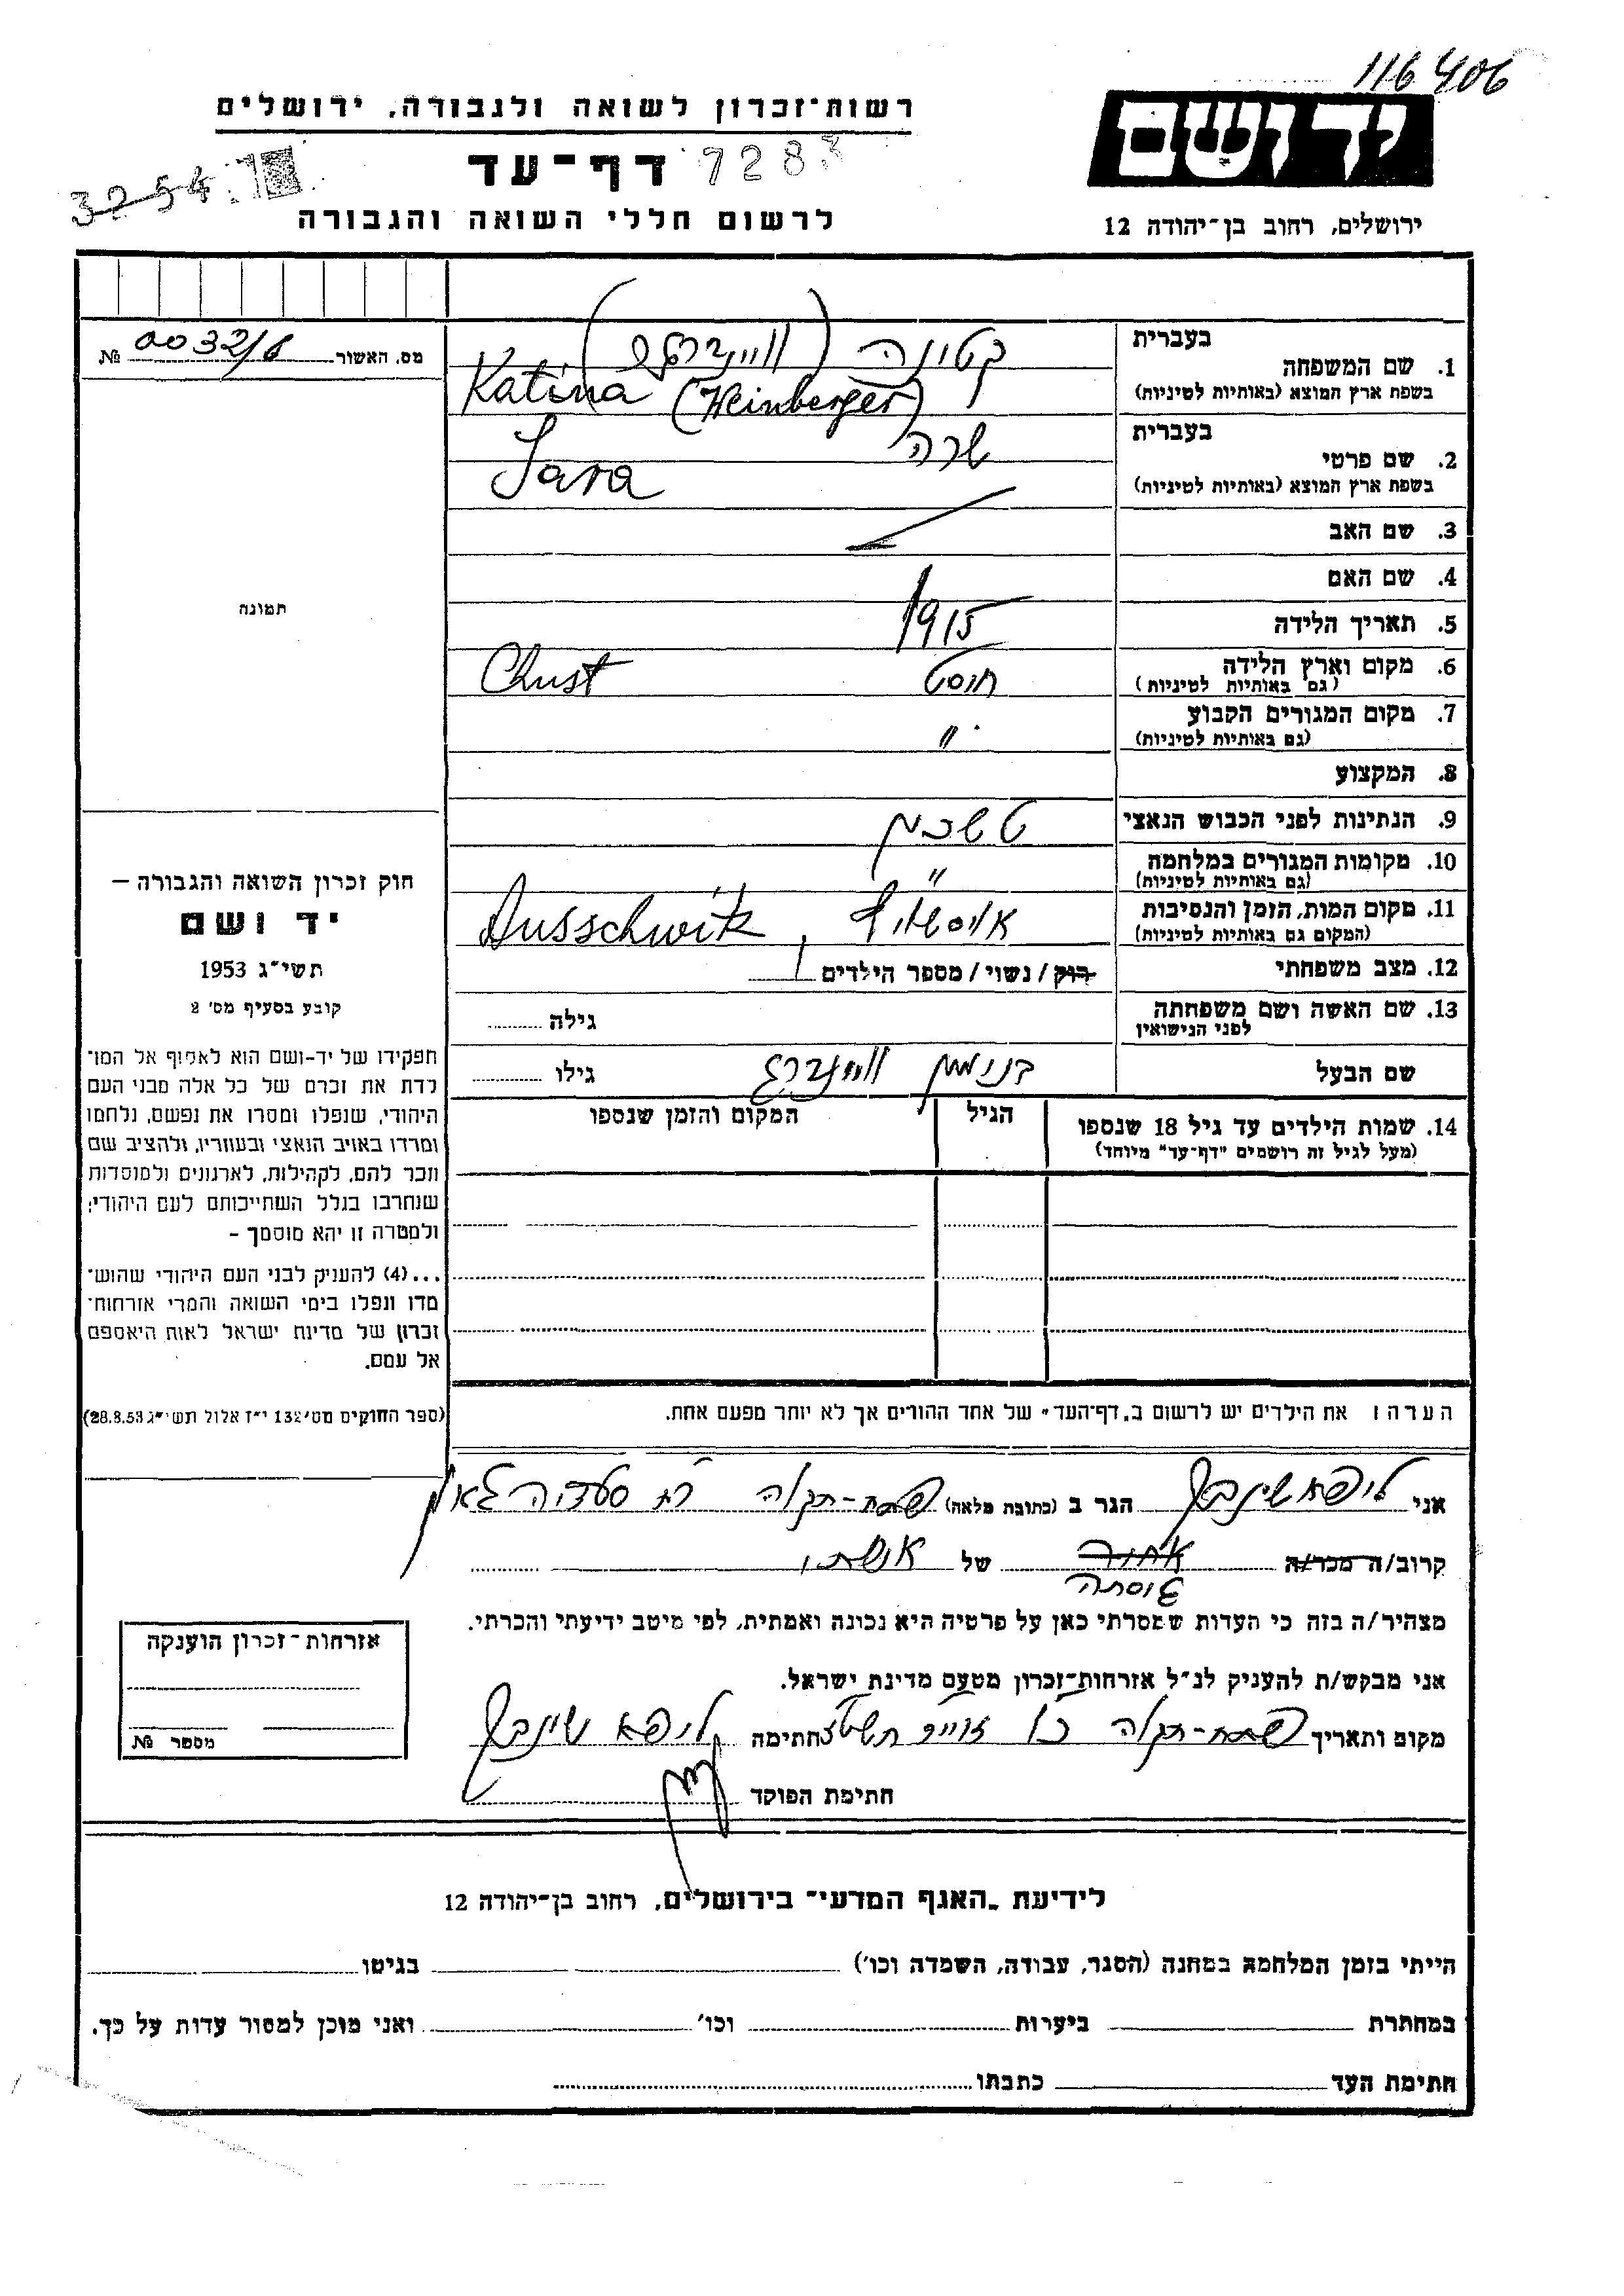 116406
רשות־זכרון לשואה ולגבורה, ירושלים
יד ושם
דף־עד 7283
3254
לרשום חללי השואה והגבורה
ירושלים, רחוב בן־יהודה 12
מס. האשור 0032/6 №
תמונה
חוק זכרון השואה והגבורה –
יד ושם
תשי״ג 1953
קובע בסעיף מס׳ 2
תפקידו של יד-ושם הוא לאסוף אל המו־
לדת את זכרם של כל אלה מבני העם
היהודי, שנפלו ומסרו את נפשם, נלחמו
ומרדו באויב הנאצי ובעוזריו, ולהציב שם
וזכר להם, לקהילות, לארגונים ולמוסדות
שנחרבו בגלל השתייכותם לעם היהודי;
ולמטרה זו יהא מוסמך –
...(4) להעניק לבני העם היהודי שהוש־
מדו ונפלו בימי השואה והמרי אזרחות־
זכרון של מדינת ישראל לאות היאספם
אל עמם.
(ספר החוקים מס׳ 132 י״ז אלול תשי״ג 28.8.53)
בעברית
1. שם המשפחה קטינה
בשפת ארץ המוצא (באותיות לטיניות) Katina (Weinberger)
בעברית
2. שם פרטי שרה
בשפת ארץ המוצא (באותיות לטיניות) Sara
3. שם האב
4. שם האם
5. תאריך הלידה 1915
6. מקום וארץ הלידה חוסט Chust
(גם באותיות לטיניות)
7. מקום המגורים הקבוע "
(גם באותיות לטיניות)
8. המקצוע
9. הנתינות לפני הכבוש הנאצי
10. מקומות המגורים במלחמה "
(גם באותיות לטיניות)
11. מקום המות, הזמן והנסיבות אוישויץ, Ausschwitz
(המקום גם באותיות לטיניות)
12. מצב משפחתי רווק / נשוי / מספר הילדים 1
13. שם האשה ושם משפחתה גילה
לפני הנישואין
שם הבעל גילו
14. שמות הילדים עד גיל 18 שנספו הגיל המקום והזמן שנספו
(מעל לגיל זה רושמים "דף־עד" מיוחד)
הערה: את הילדים יש לרשום ב„דף־העד" של אחד ההורים אך לא יותר מפעם אחת.
אני ליפא הגר ב (כתובת מלאה) פתח-תקוה רח סעדיה גאון
קרוב/ה מכר/ה של אשתו
גיסתה
מצהיר/ה בזה כי העדות שמסרתי כאן על פרטיה היא נכונה ואמתית, לפי מיטב ידיעתי והכרתי.
אני מבקש/ת להעניק לנ״ל אזרחות־זכרון מטעם מדינת ישראל.
מקום ותאריך פתח-תקוה חתימה ליפא
חתימת הפוקד
אזרחות־זכרון הוענקה
מספר №
לידיעת „האגף המדעי" בירושלים, רחוב בן־יהודה 12
הייתי בזמן המלחמה במחנה (הסגר, עבודה, השמדה וכו׳) בגיטו
במחתרת ביערות וכו׳ ואני מוכן למסור עדות על כך.
חתימת העד כתבתו